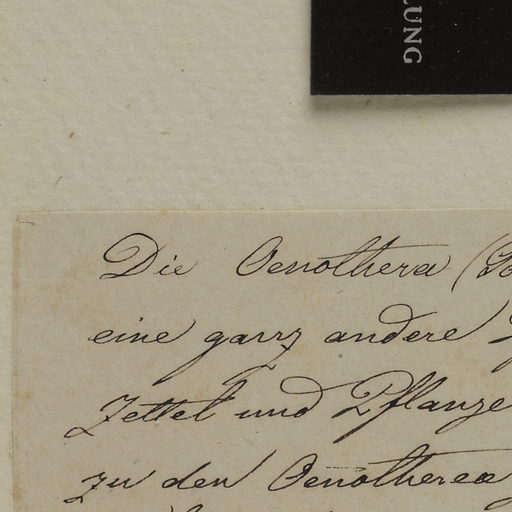 LUNG
Die Oenothera (
eine ganz andere
Zettel und Pflanze
zu den Oenotherea